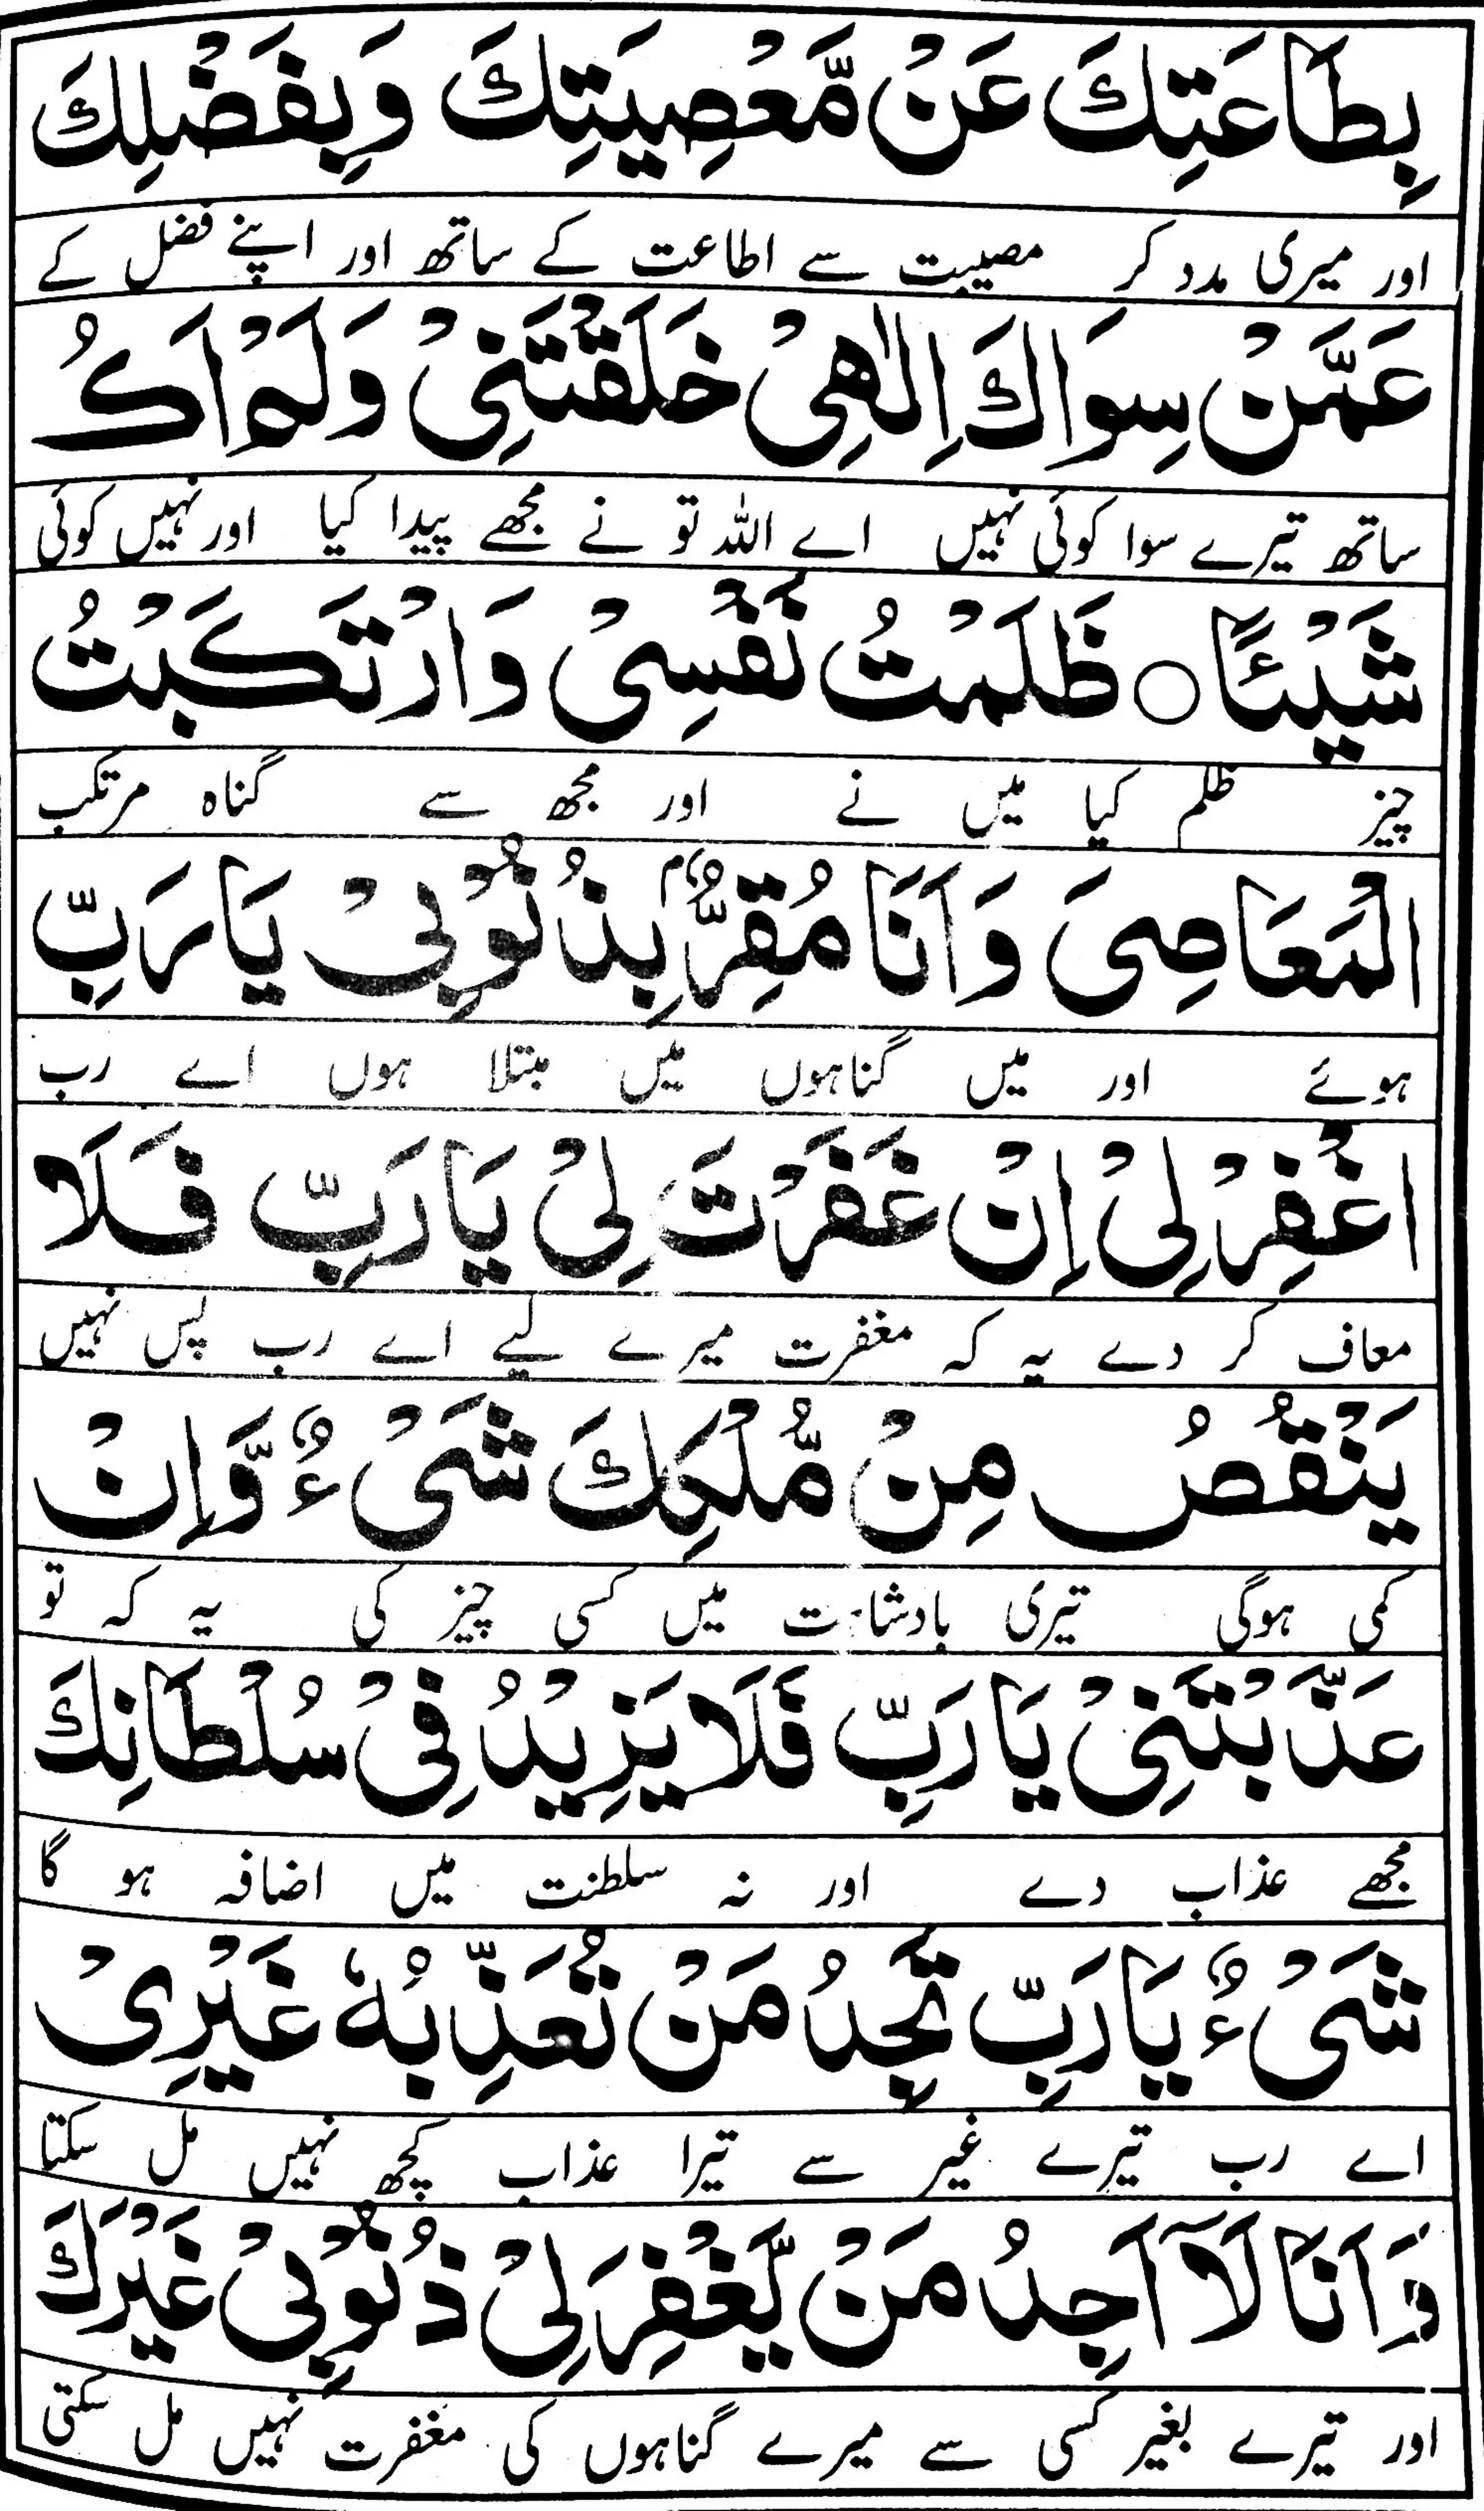 بِطَاعَتِكَ عَنْ مَّعْصِيَتِكَ وَبِفَضْلِكَ
اور میری مدد کر مصیبت سے اطاعت کے ساتھ اور اپنے فضل کے
عَمَّنْ سِوَاكَ اِلٰهِيْ خَلَقْتَنِيْ وَلَمْ اَكُ
ساتھ تیرے سوا کوئی نہیں اے اللہ تو نے مجھے پیدا کیا اور نہیں کوئی
شَيْئًا ○ ظَلَمْتُ نَفْسِيْ وَارْتَكَبْتُ
چیز ظلم کیا میں نے اور مجھ سے گناہ مرتکب
الْمَعَاصِيَ وَاَنَا مُقِرٌّۢ بِذُنُوْبِيْ يَارَبِّ
ہوئے اور میں گناہوں میں مبتلا ہوں اے رب
اغْفِرْلِيْ اِنْ غَفَرْتَ لِيْ يَارَبِّ فَلَا
معاف کر دے یہ کہ مغفرت میرے لیے اے رب پس نہیں
يَنْقُصُ مِنْ مُّلْكِكَ شَيْءٌ وَّاِنْ
کمی ہوگی تیری بادشاہت میں کسی چیز کی یہ کہ تو
عَذَّبْتَنِيْ يَارَبِّ فَلَا يَزِيْدُ فِيْ سُلْطَانِكَ
مجھے عذاب دے اور نہ سلطنت میں اضافہ ہو گا
شَيْءٌ يَارَبِّ تَجِدُ مَنْ تُعَذِّبُهٗ غَيْرِيْ
اے رب تیرے غیر سے تیرا عذاب کچھ نہیں مل سکتا
وَاَنَا لَآ اَجِدُ مَنْ يَّغْفِرَلِيْ ذُنُوْبِيْ غَيْرَكَ
اور تیرے بغیر کسی سے میرے گناہوں کی مغفرت نہیں مل سکتی